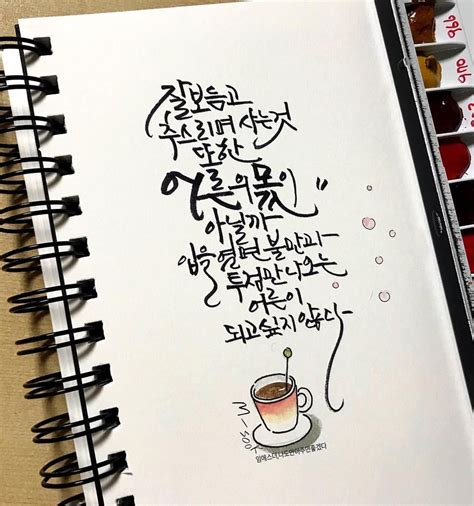 잘보듬고
추스리며 사는것
또한
어른의 몫이
아닐까
입을 열면 불만과
투정만 나오는
어른이
되고싶지 않다